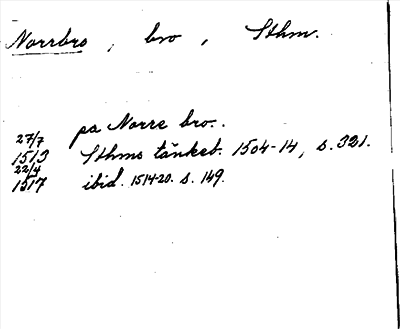 Norrbro, bro, Sthm.
på Norre bro..
27/7
1513 Sthms tänkeb. 1504-14, s. 321.
22/4
1517 ibid. 1514-20. s. 149.